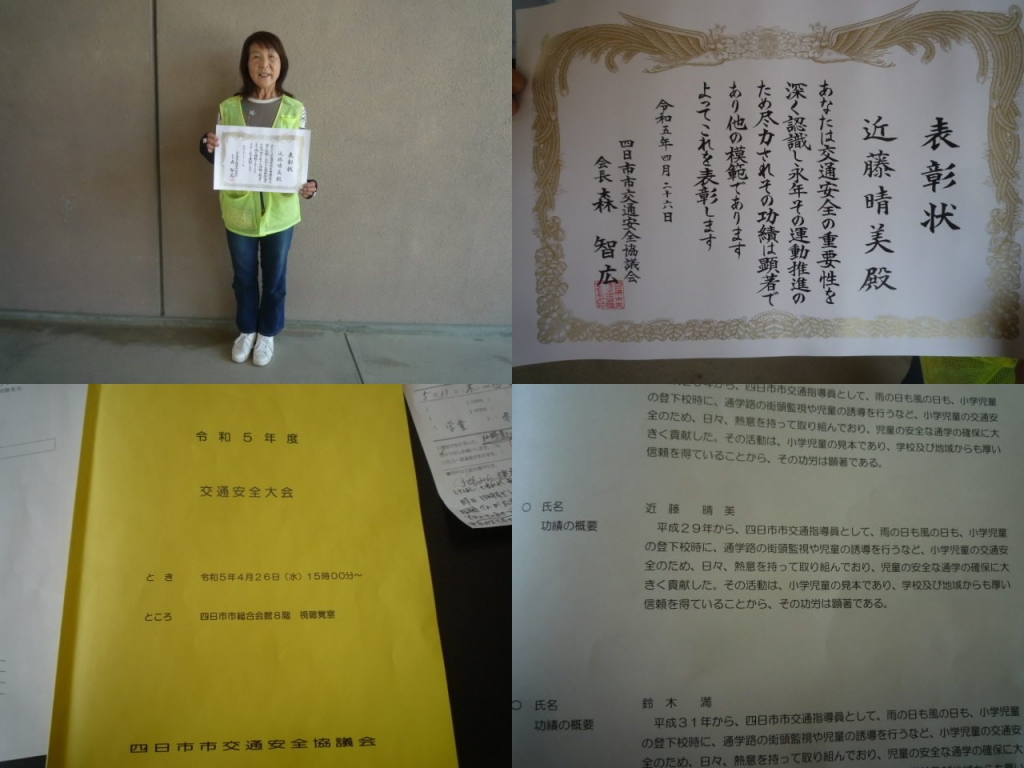 表彰状
近藤晴美殿
あなたは交通安全の重要性を
深く認識し永年その運動推進の
ため尽力されその功績は顕著で
あり他の模範であります
よってこれを表彰します
令和五年四月二十六日
四日市市交通安全協議会
会長 森 智広
令和5年度
交通安全大会
とき 令和5年4月26日(水)15時00分~
ところ 四日市市総合会館8階 視聴覚室
四日市市交通安全協議会
から、四日市市交通指導員として、雨の日も風の日も、小学児童
の登下校時に、通学路の街頭監視や児童の誘導を行うなど、小学児童の交通安
全のため、日々、熱意を持って取り組んでおり、児童の安全な通学の確保に大
きく貢献した。その活動は、小学児童の見本であり、学校及び地域からも厚い
信頼を得ていることから、その功労は顕著である。
○ 氏名 近藤 晴美
功績の概要 平成29年から、四日市市交通指導員として、雨の日も風の日も、小学児童
の登下校時に、通学路の街頭監視や児童の誘導を行うなど、小学児童の交通安
全のため、日々、熱意を持って取り組んでおり、児童の安全な通学の確保に大
きく貢献した。その活動は、小学児童の見本であり、学校及び地域からも厚い
信頼を得ていることから、その功労は顕著である。
○ 氏名 鈴木 満
功績の概要 平成31年から、四日市市交通指導員として、雨の日も風の日も、小学児童
の登下校時に、通学路の街頭監視や児童の誘導を行うなど、小学児童の交通安
全のため、日々、熱意を持って取り組んでおり、児童の安全な通学の確保に大